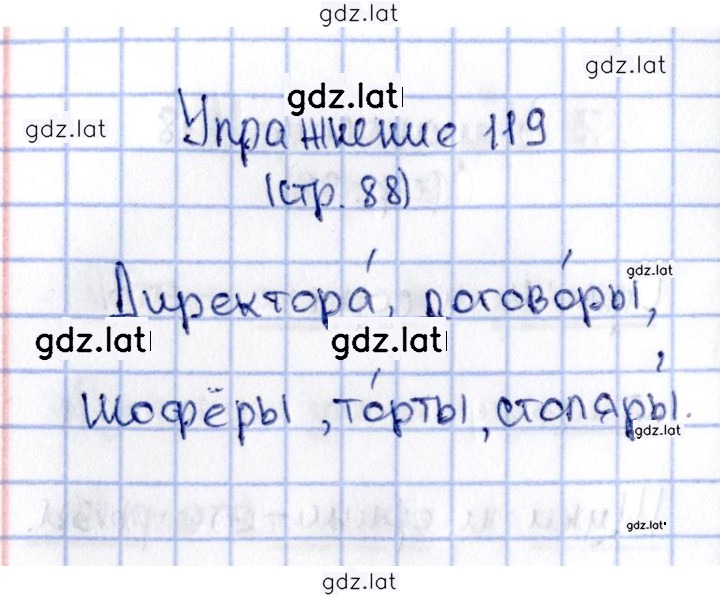 gdz.lat
gdz.lat
gdz.lat
gdz.lat
Упражнение 119
(стр. 88)
gdz.lat
Директора́, договóры,
gdz.lat
gdz.lat
шофёры, тóрты, столяры́.
gdz.lat
gdz.lat
gdz.lat